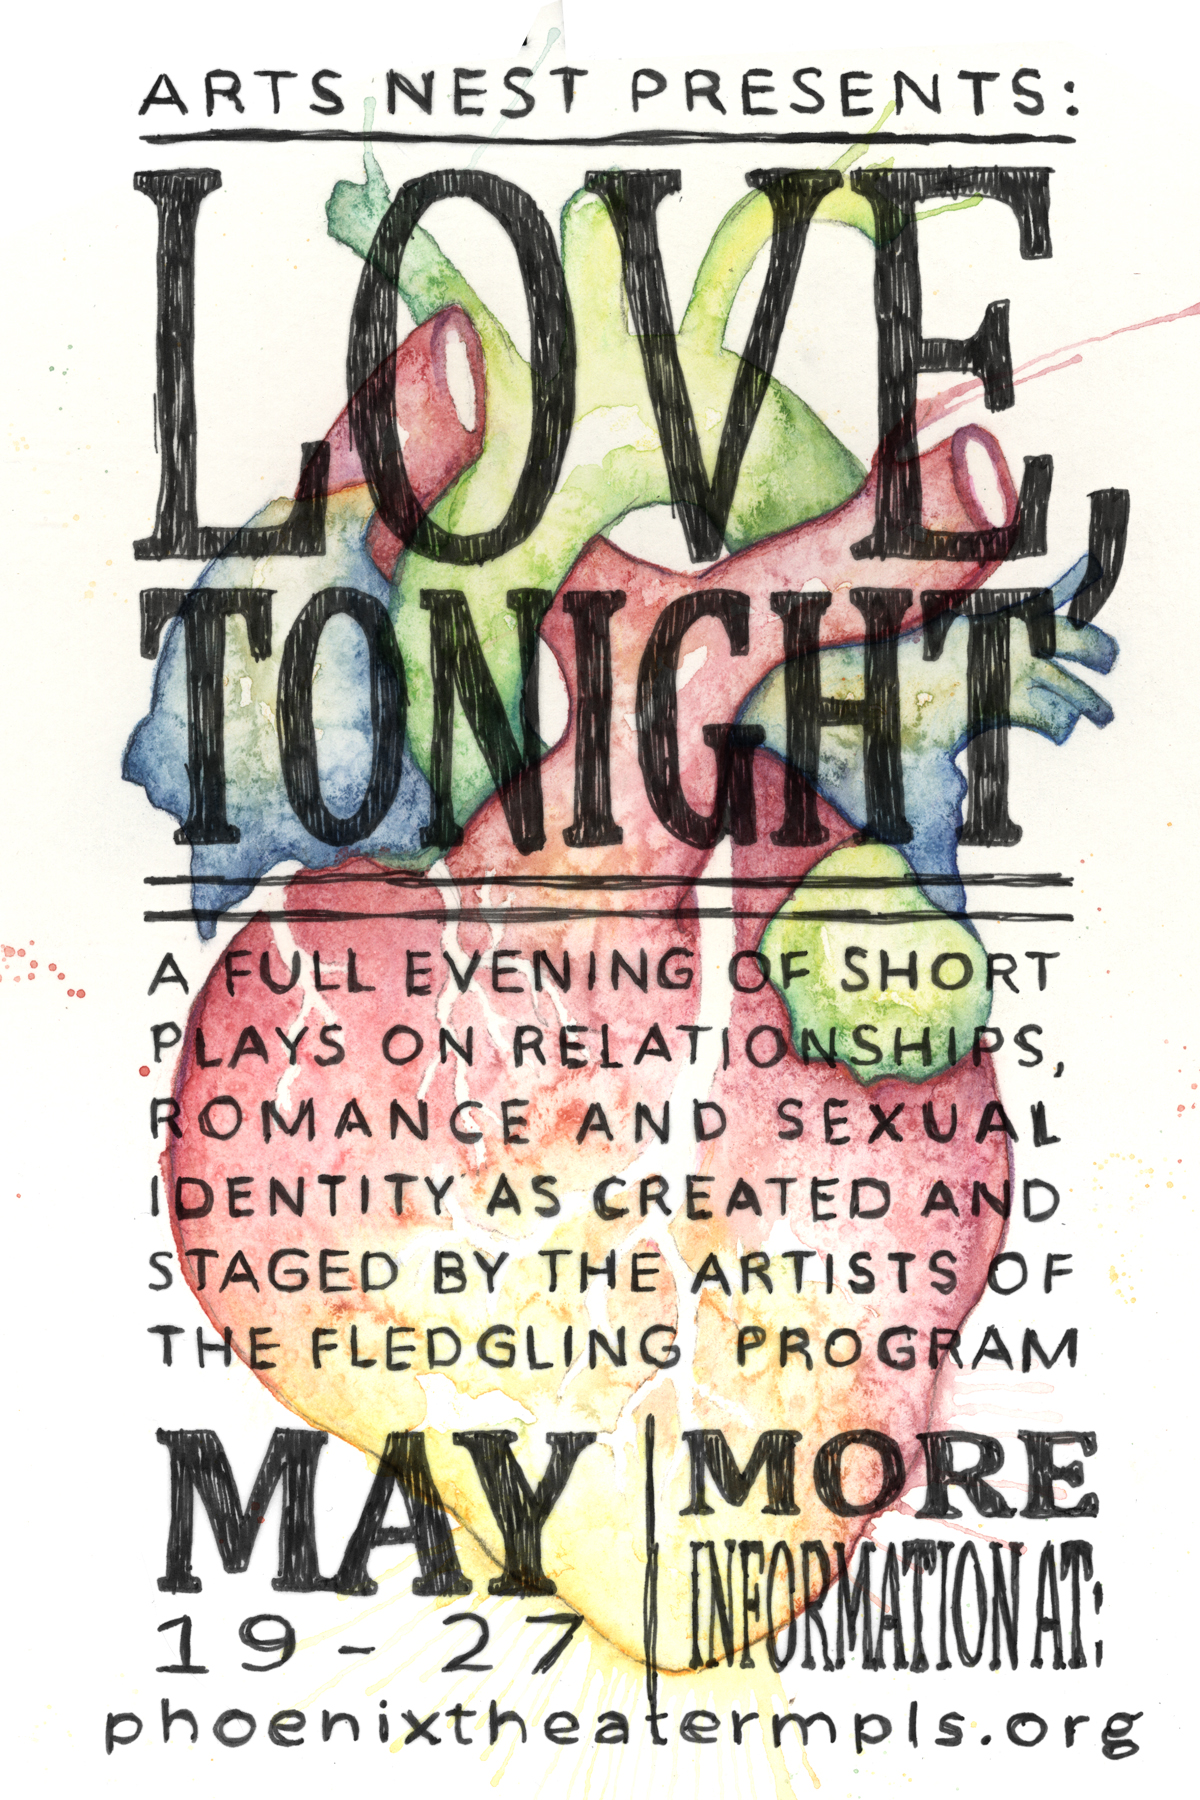 ARTS NEST PRESENTS:
LOVE,
TONIGHT
A FULL EVENING OF SHORT
PLAYS ON RELATIONSHIPS,
ROMANCE AND SEXUAL
IDENTITY AS CREATED AND
STAGED BY THE ARTISTS OF
THE FLEDGLING PROGRAM
MAY
19 - 27
MORE
INFORMATION AT:
phoenixtheatermpls.org